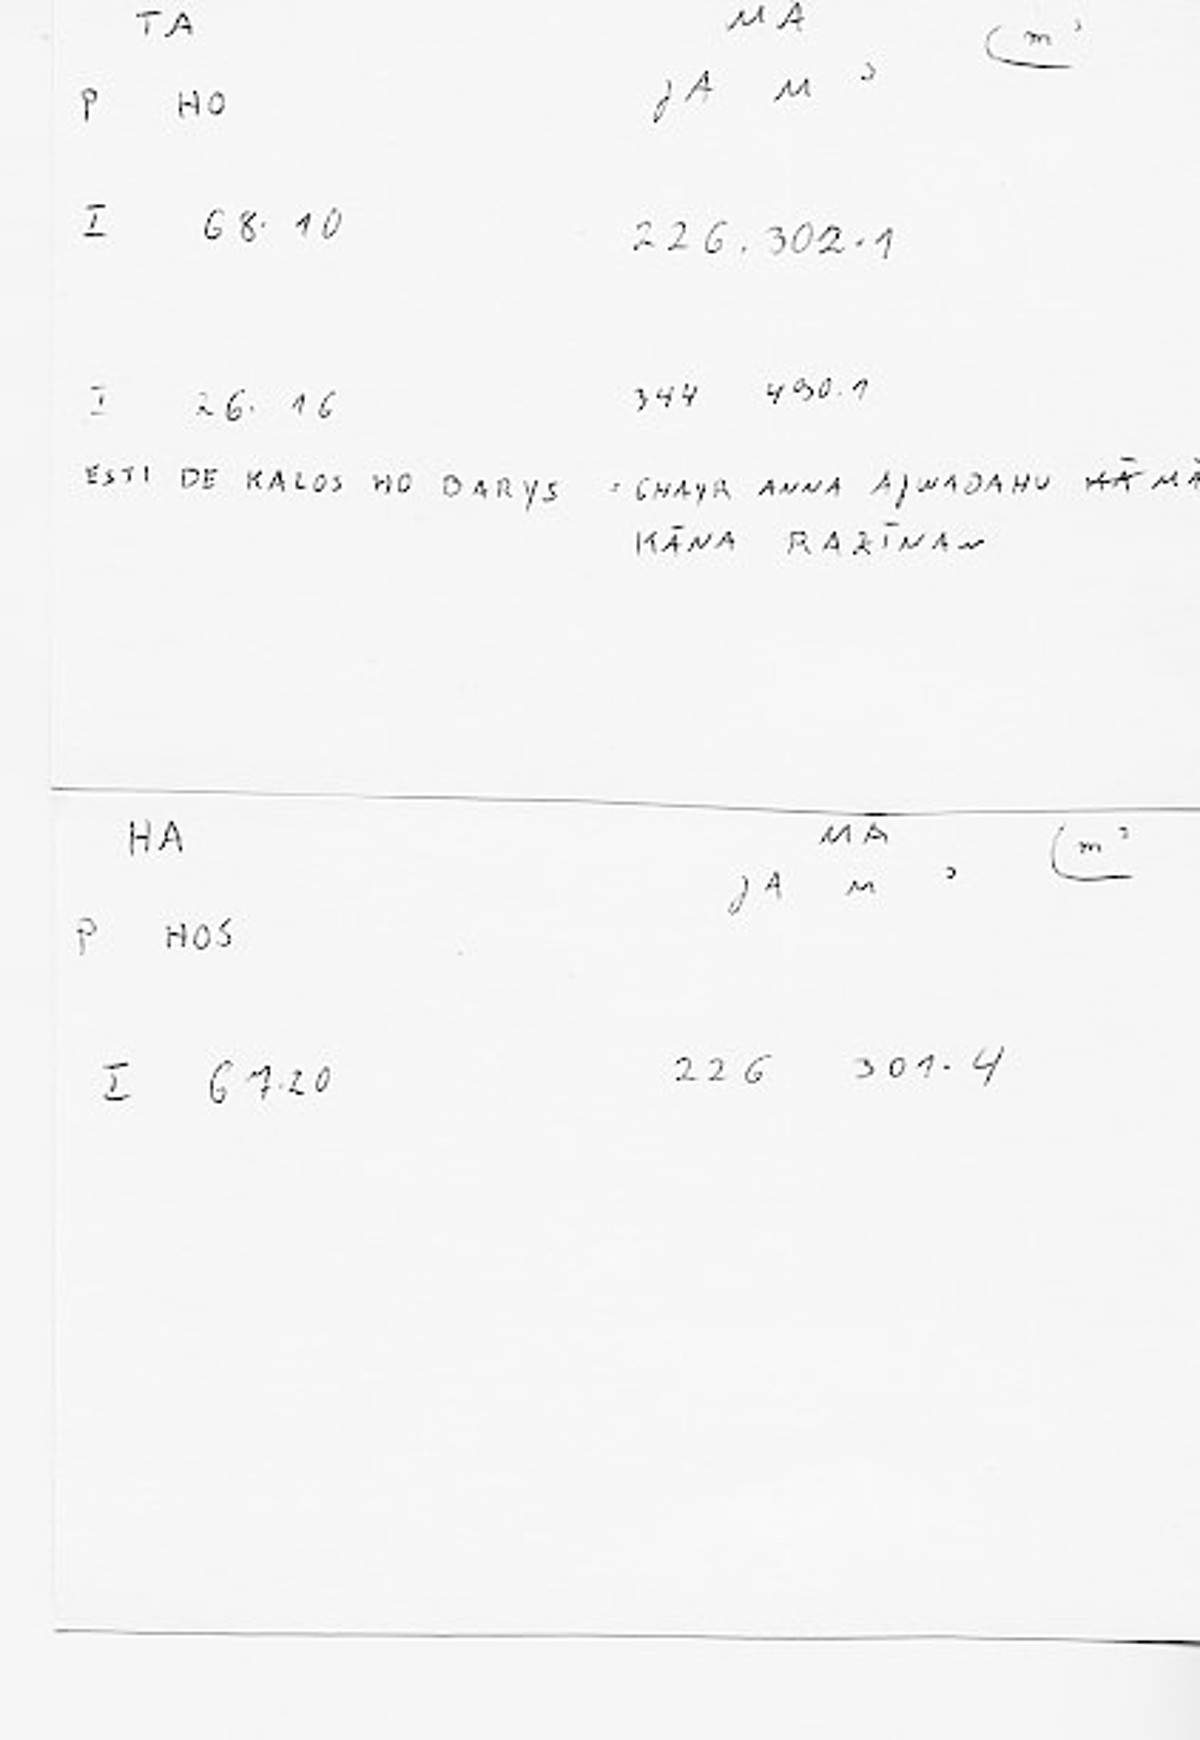 TA MA (m ʾ
P HO JA M ʾ
I 68.10 226.302.1
I 26.16 344 490.1
ESTI DE KALOS HO BARYS : GHAYR ANNA AJWADAHU MĀ
KĀNA RAZĪNAN
HA MA (m ʾ
P HOS JA M ʾ
I 67.20 226 301.4